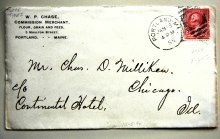 W. P. CHASE,
COMMISSION MERCHANT,
FLOUR, GRAIN AND FEED,
5 MOULTON STREET,
PORTLAND, - MAINE.
Mr. Chas. D. Milliken
Chicago.
c/o
Continental Hotel, Ill.